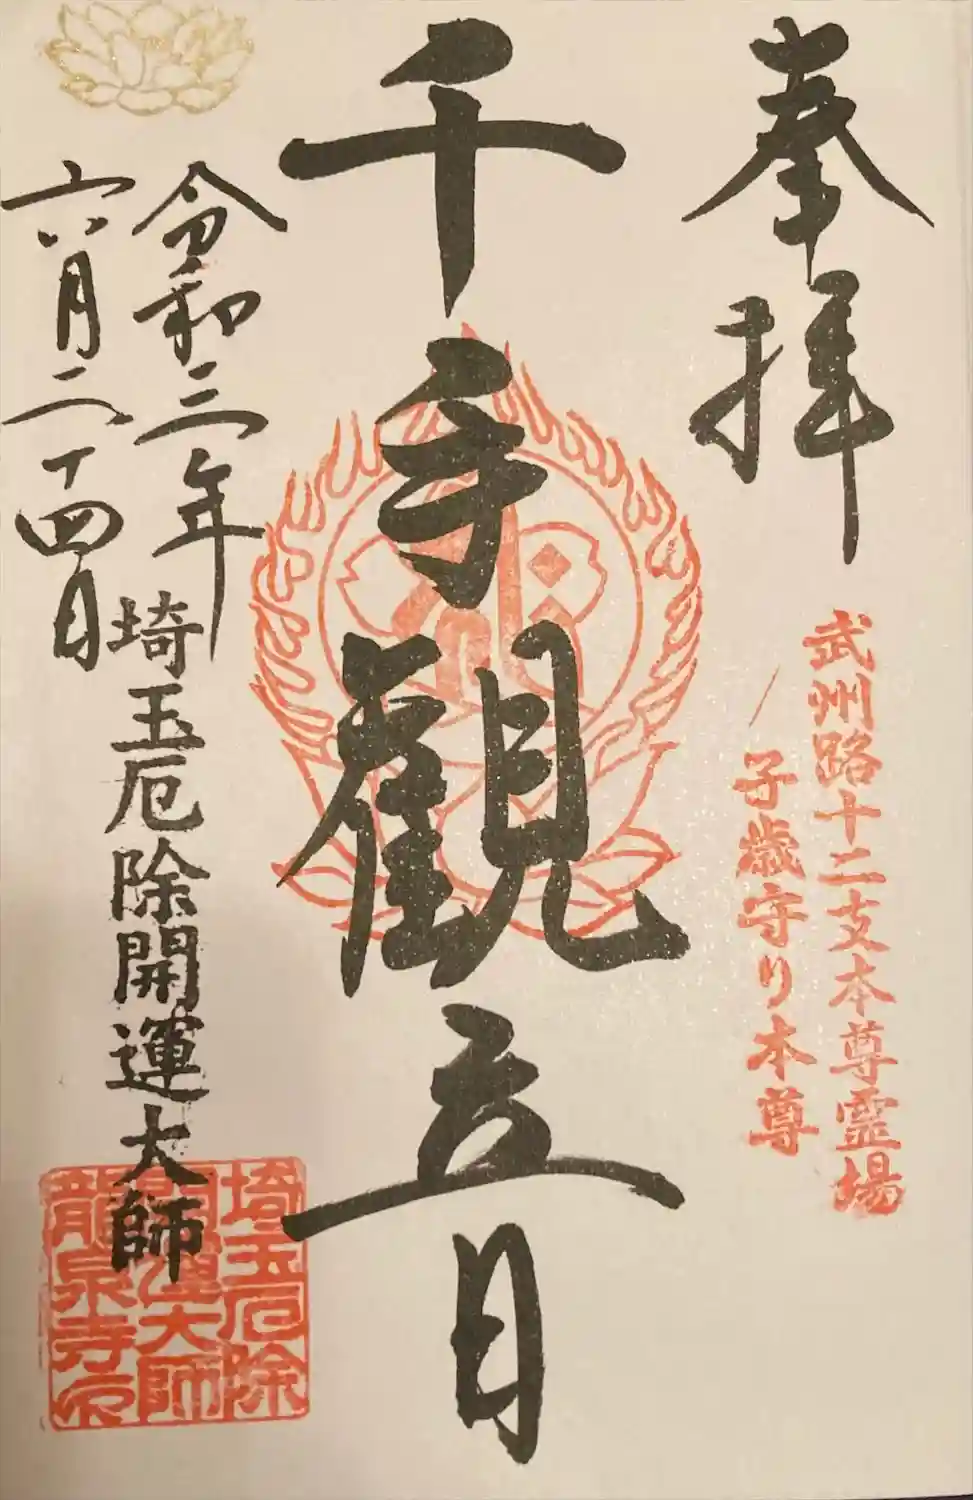 奉拝
武州路十二支本尊霊場
子歳守り本尊
千手観音
令和三年
六月二十四日
埼玉厄除開運大師
埼玉厄除
開運大師
龍泉寺印